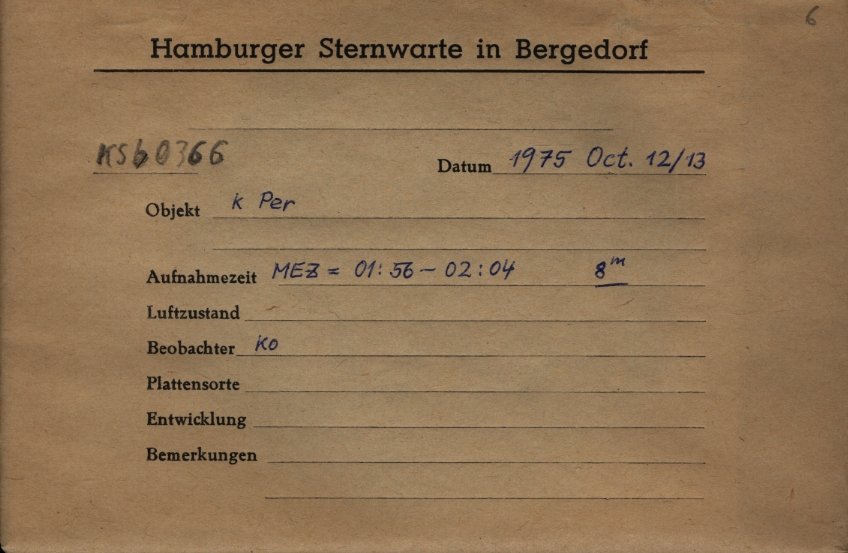 6
Hamburger Sternwarte in Bergedorf
KSb0366
Datum 1975 Oct. 12/13
Objekt k Per
Aufnahmezeit MEZ = 01:56 - 02:04 8ᵐ
Luftzustand
Beobachter Ko
Plattensorte
Entwicklung
Bemerkungen